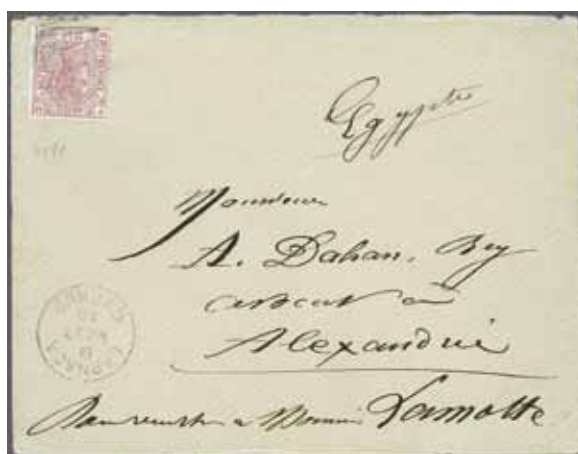 Egypte
Monsieur
A. Dahan. Bey
avocat à
Alexandrie
Pour remettre a Monsieur Lamotte
LARNACA
CYPRUS